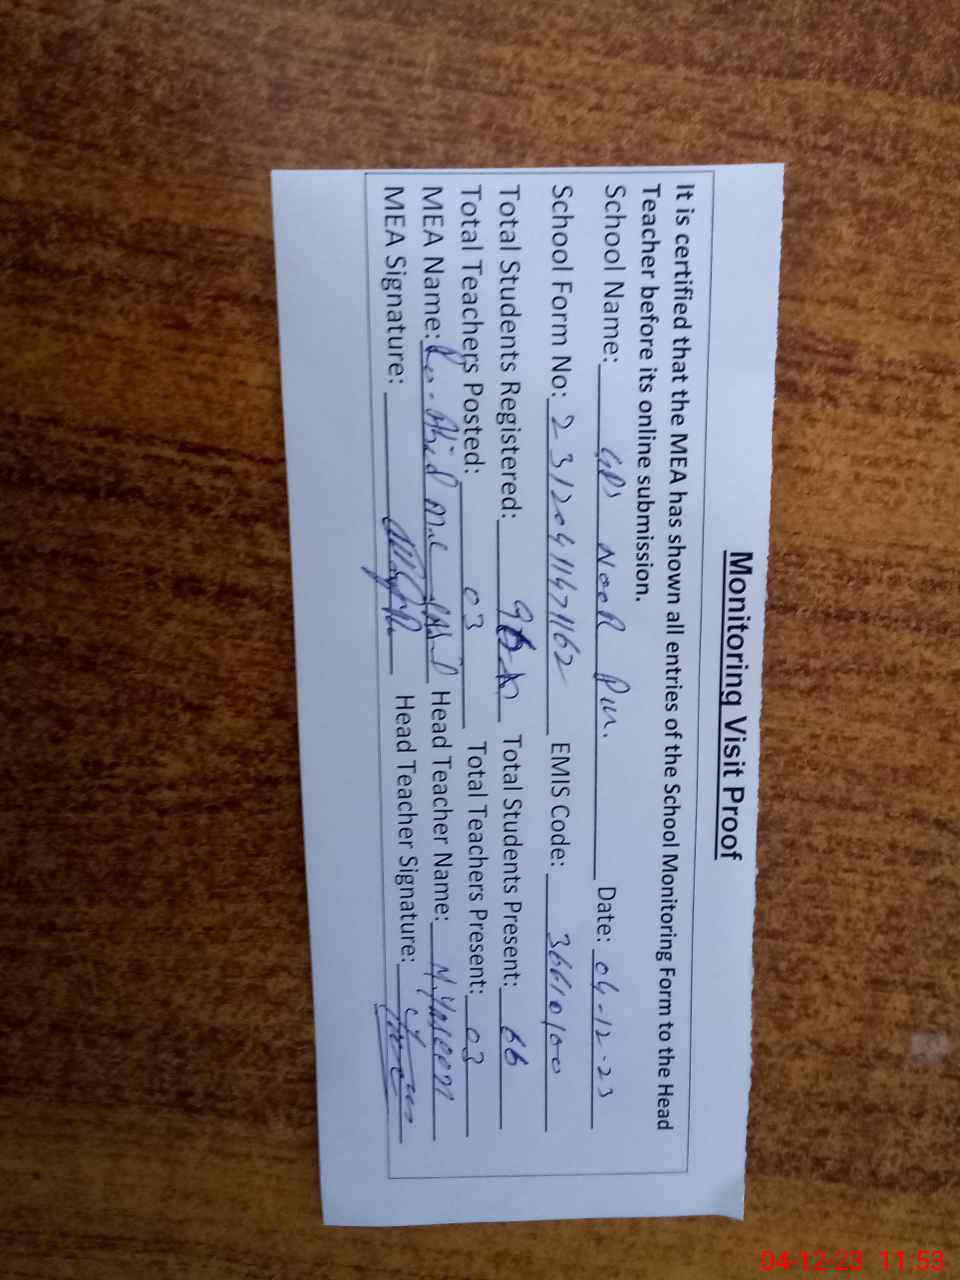 Monitoring Visit Proof
It is certified that the MEA has shown all entries of the School Monitoring Form to the Head
Teacher before its online submission.
School Name: GPS NooR Pur. Date: 04-12-23
School Form No: EMIS Code: 36610100
Total Students Registered: Total Students Present: 66
Total Teachers Posted: 03 Total Teachers Present: 03
MEA Name: Head Teacher Name: M. Yaseen
MEA Signature: Head Teacher Signature:
04-12-23 11:53